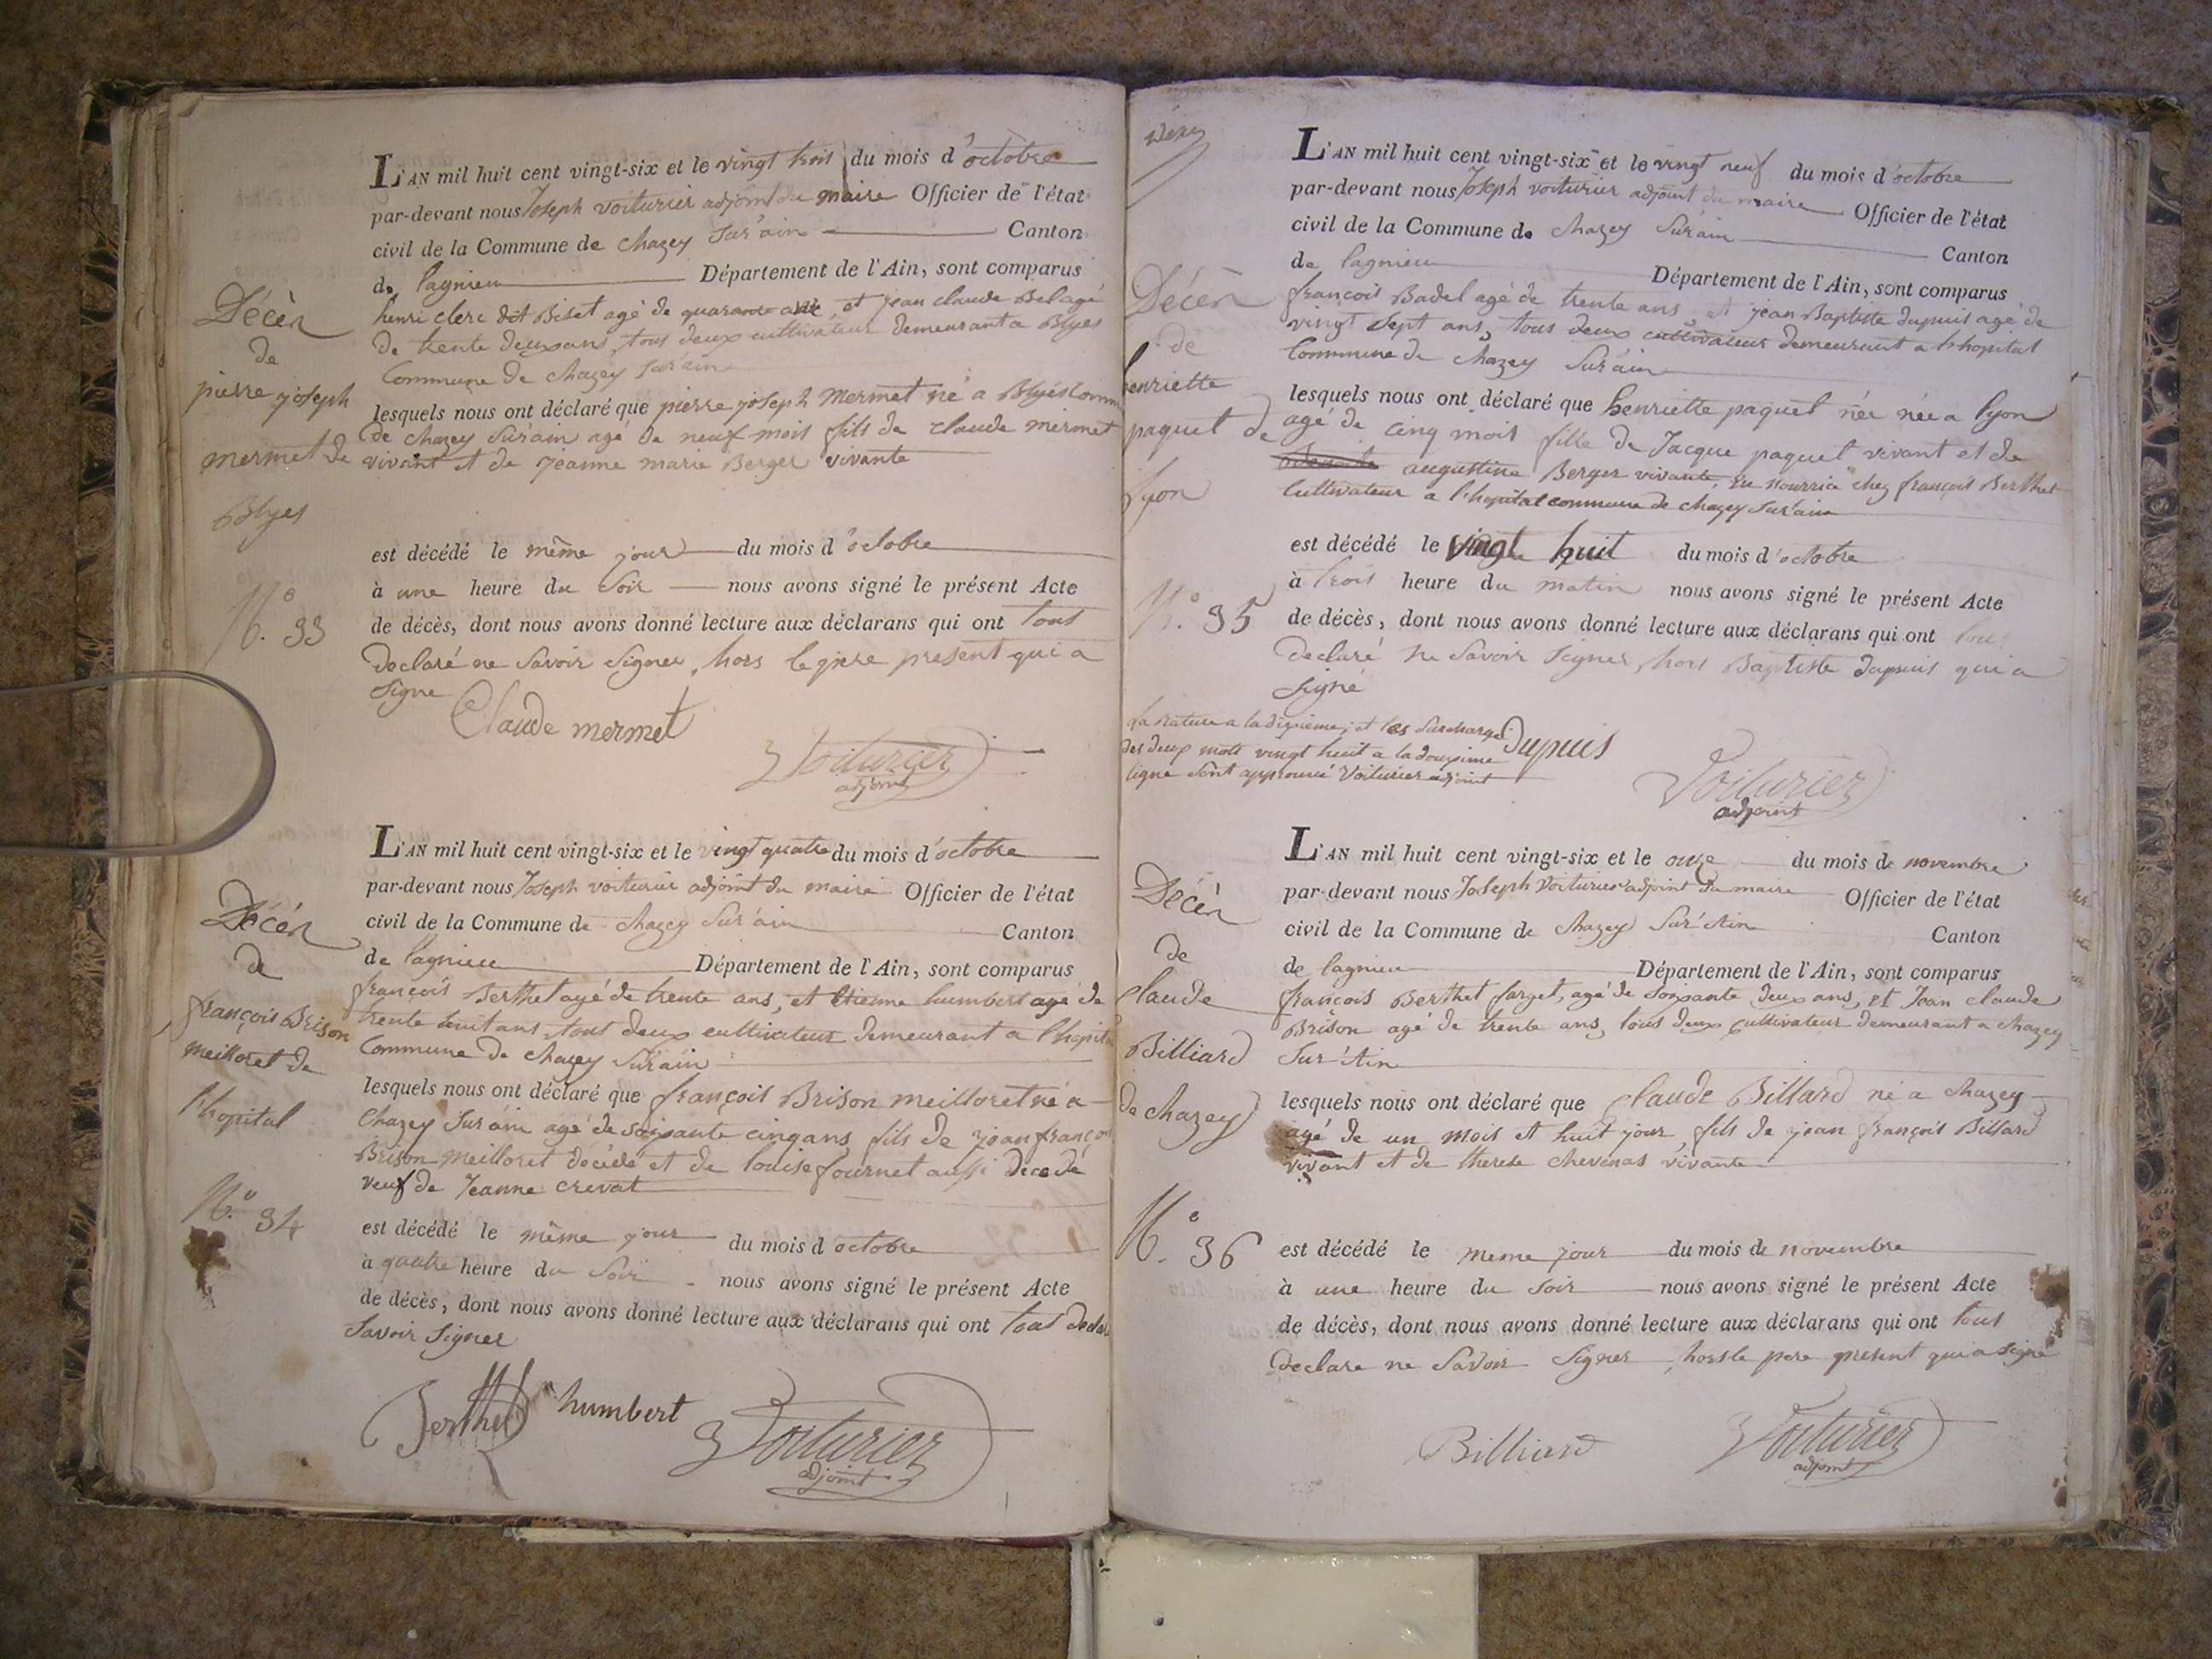 L'AN mil huit cent vingt-six et le vingt trois du mois d'octobre
par-devant nous Joseph voiturier adjoint du maire Officier de l'état
civil de la Commune de chazey sur'ain Canton
de lagnieu Département de l'Ain, sont comparus
henri clerc dit Biset agé de quarante ans, et jean claude Bel agé
de trente deux ans, tous deux cultivateur demeurant a Blyes
Commune de chazey sur'ain
lesquels nous ont déclaré que pierre joseph mermet né a Blyes Comm
de chazey sur'ain agé de neuf mois fils de claude mermet
vivant et de jeanne marie Berger vivante
est décédé le même jour du mois d'octobre
à une heure du soir nous avons signé le présent Acte
de décès, dont nous avons donné lecture aux déclarans qui ont tous
declaré ne savoir signer, hors le père present qui a
signe
Claude mermet
Voiturier
adjoint
Décèn
de
pierre joseph
mermet de
Blyes
N.° 33
L'AN mil huit cent vingt-six et le vingt quatre du mois d'octobre
par-devant nous Joseph voiturier adjoint du maire Officier de l'état
civil de la Commune de chazey sur'ain Canton
de lagnieu Département de l'Ain, sont comparus
françois Berthet agé de trente ans, et Etienne humbert agé de
trente huit ans tous deux cultivateur demeurant a l'hopita
Commune de chazey sur'ain
lesquels nous ont déclaré que françois Brison meilloret né a
chazey sur'ain agé de soixante cinq ans fils de jean françois
Brison meilloret décédé et de louise fournet aussi decedé
veuf de Jeanne crevat
est décédé le même jour du mois d octobre
à quatre heure du soir nous avons signé le présent Acte
de décès, dont nous avons donné lecture aux déclarans qui ont tous declar
savoir signer
Berthet humbert Voiturier
adjoint
Décèn
de
françois Brison
meilloret de
l'hopital
N.° 34
L'AN mil huit cent vingt-six et le vingt neuf du mois d'octobre
par-devant nous Joseph voiturier adjoint du maire Officier de l'état
civil de la Commune de chazey sur'ain Canton
de lagnieu Département de l'Ain, sont comparus
françois Badel agé de trente ans, et jean Baptiste dupuis agé de
vingt sept ans, tous deux cultivateur demeurant a l'hopital
Commune de chazey sur'ain
lesquels nous ont déclaré que henriette paquet née née a lyon
agé de cinq mois fille de Jacque paquet vivant et de
augustine Berger vivante, en nourrice chez françois Berthet
cultivateur a l'hopital commune de chazey sur'ain
est décédé le vingt huit du mois d'octobre
à trois heure du matin nous avons signé le présent Acte
de décès, dont nous avons donné lecture aux déclarans qui ont tous
declaré ne savoir signer, hors Baptiste dupuis qui a
signé
la rature a la dixieme, et les surcharge
des deux mots vingt huit a la douzieme
ligne sont approuvé Voiturier adjoint
Dupuis
Voiturier
adjoint
Décèn
de
henriette
paquet de
lyon
N.° 35
L'AN mil huit cent vingt-six et le onze du mois de novembre
par-devant nous Joseph Voiturier adjoint du maire Officier de l'état
civil de la Commune de chazey sur'Ain Canton
de lagnieu Département de l'Ain, sont comparus
françois Berthet farget, agé de soixante deux ans, et Jean claude
Brison agé de trente ans, tous deux cultivateur demeurant a chazey
sur-Ain
lesquels nous ont déclaré que Claude Billard né a chazey
agé de un mois et huit jour, fils de jean françois Billard
vivant et de therese chevenas vivante
est décédé le meme jour du mois de novembre
à une heure du soir nous avons signé le présent Acte
de décès, dont nous avons donné lecture aux déclarans qui ont tous
declare ne savoir signer, hors le pere present qui a signé
Billiard Voiturier
adjoint
Décèn
de
claude
Billiard
de chazey
N.° 36